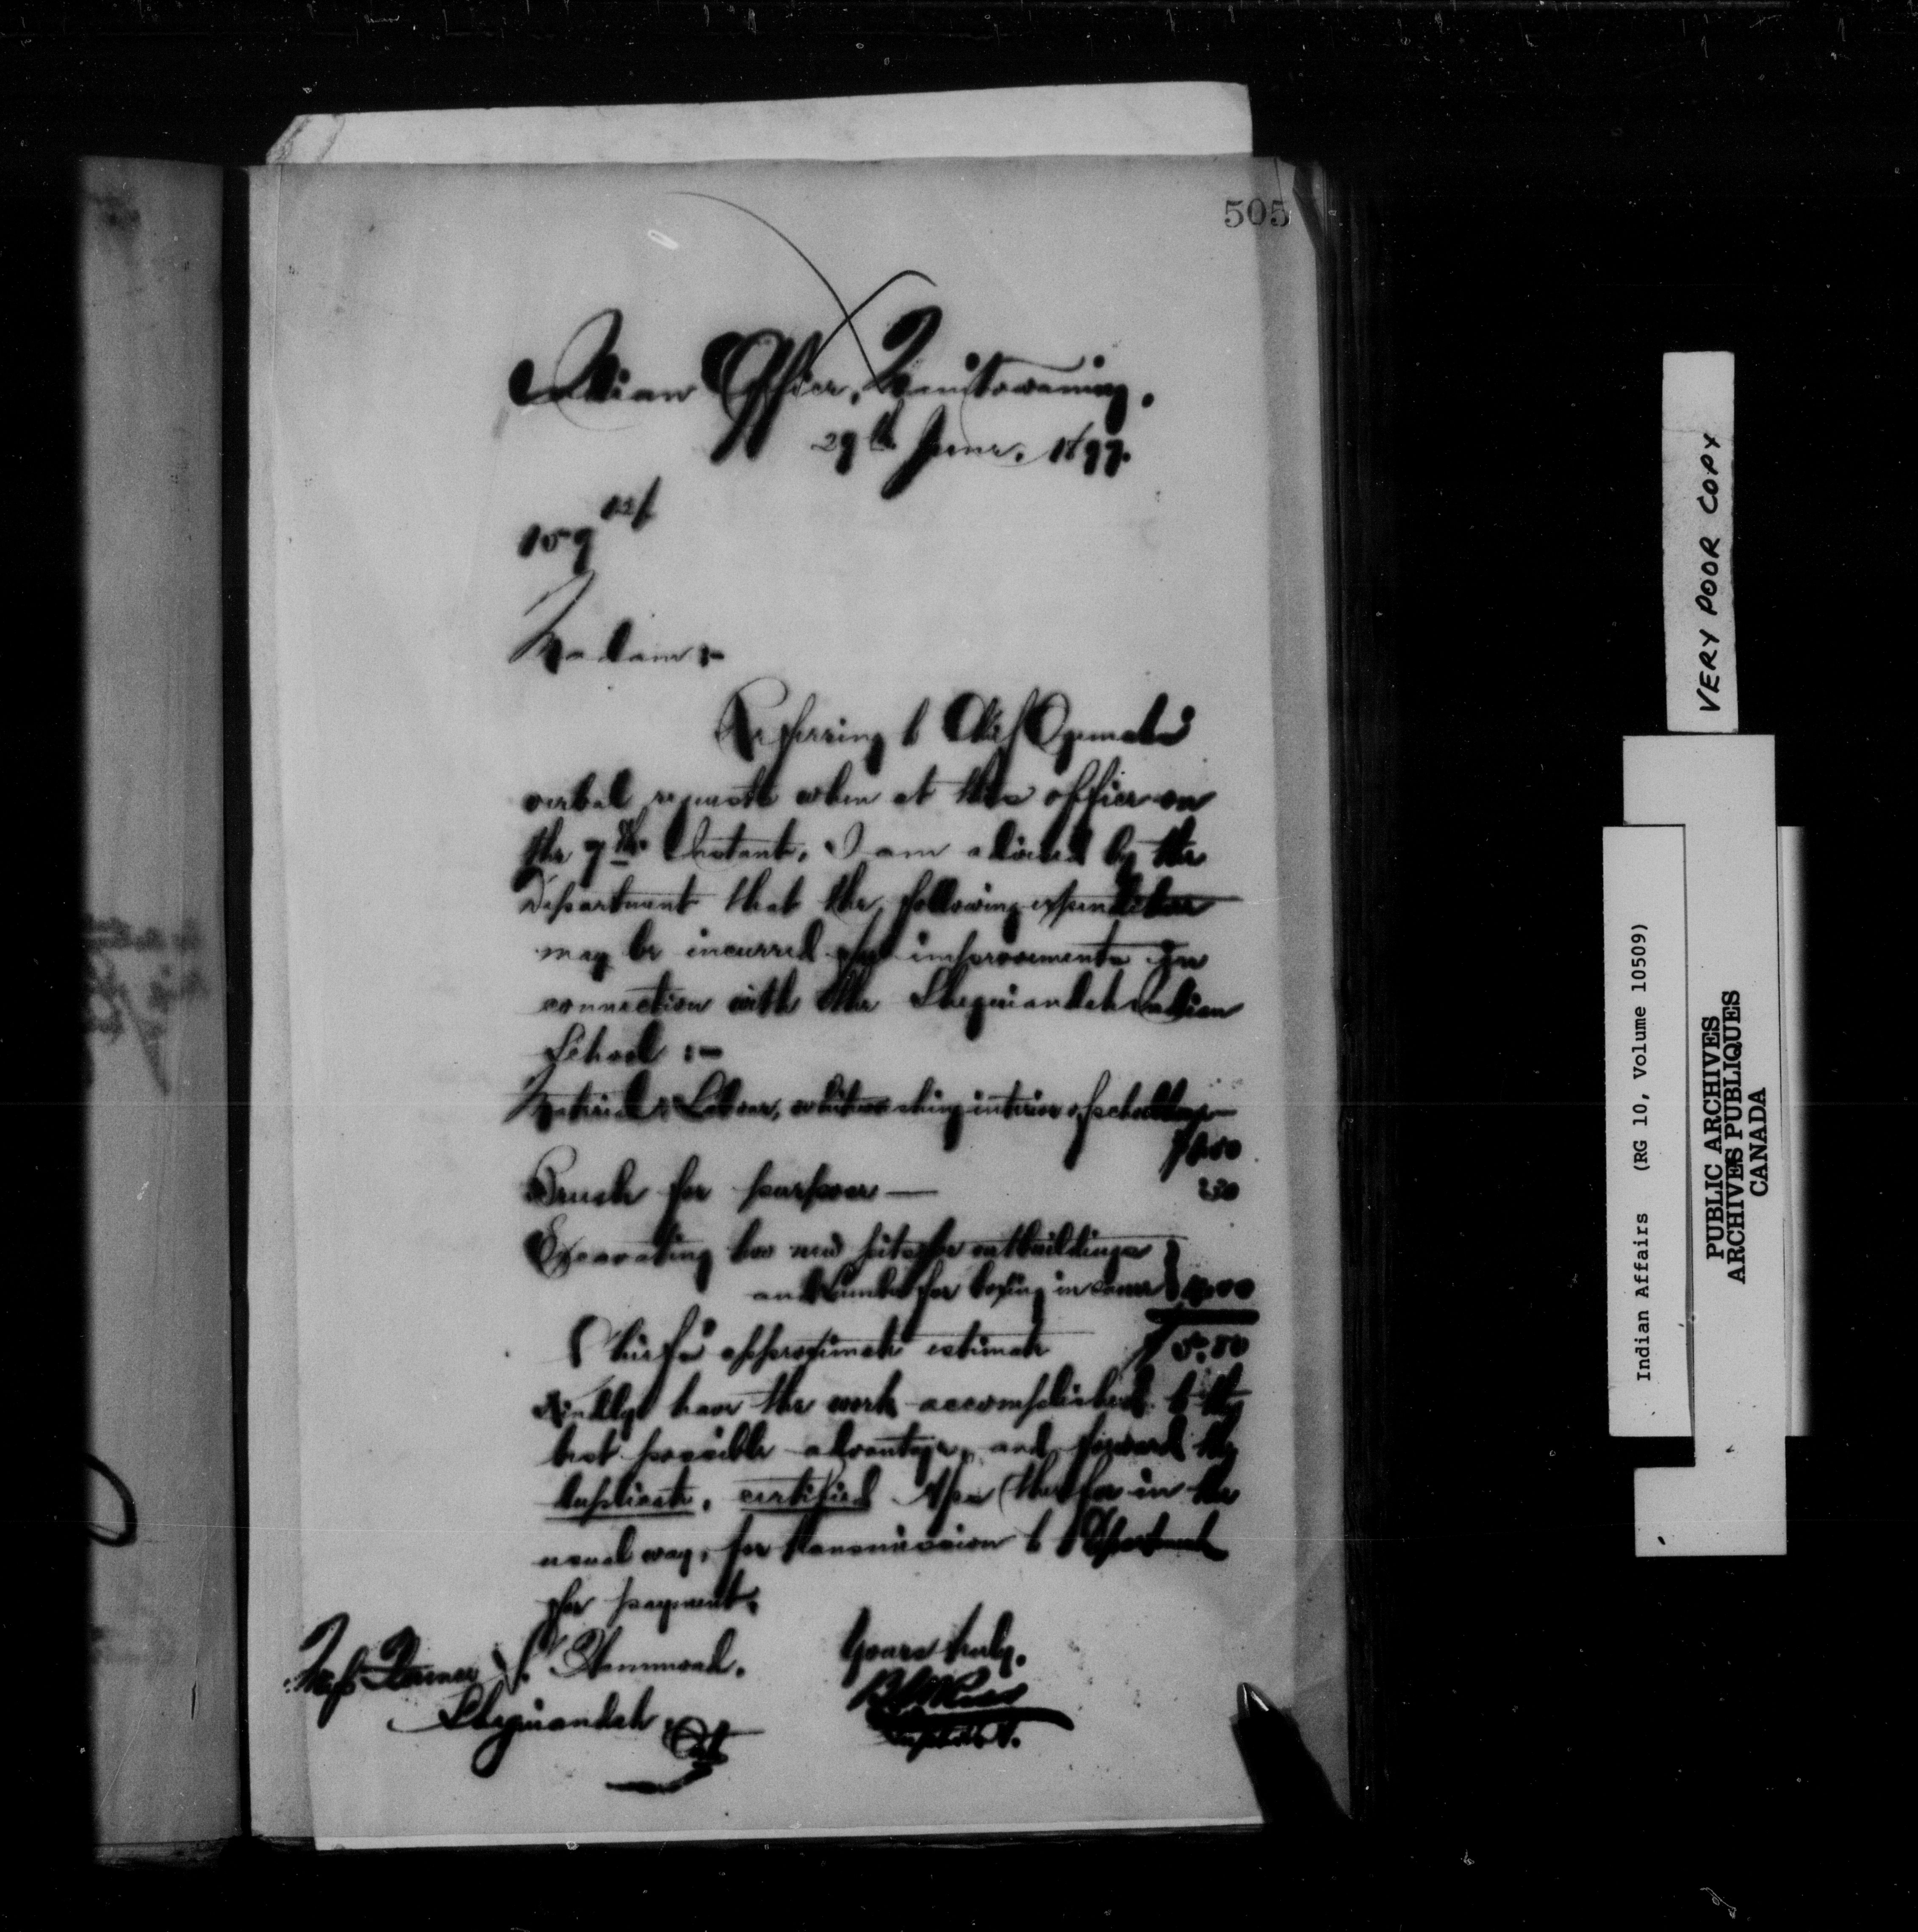 505
Indian Office, Manitowaning.
29th June. 1897.
Madam :-
Referring to Chief
verbal request when at this office on
the 7th Instant, I am advised by the
Department that the following expenditure
may be incurred for improvements in
connection with the Sheguiandah Indian
School :-
Material & Labour, whitewashing interior of schoolhouse
Brush for purpose —
Excavating two new pits for outbuildings
and Lumber for boxing in same 4.00
approximate estimate
Kindly have the work accomplished to the
best possible advantage, and forward the
duplicate, certified therefor in the
usual way, for transmission to Department
for payment.
Yours truly,
Miss
Sheguiandah
Ont
VERY POOR COPY
Indian Affairs (RG 10, Volume 10509)
PUBLIC ARCHIVES
ARCHIVES PUBLIQUES
CANADA